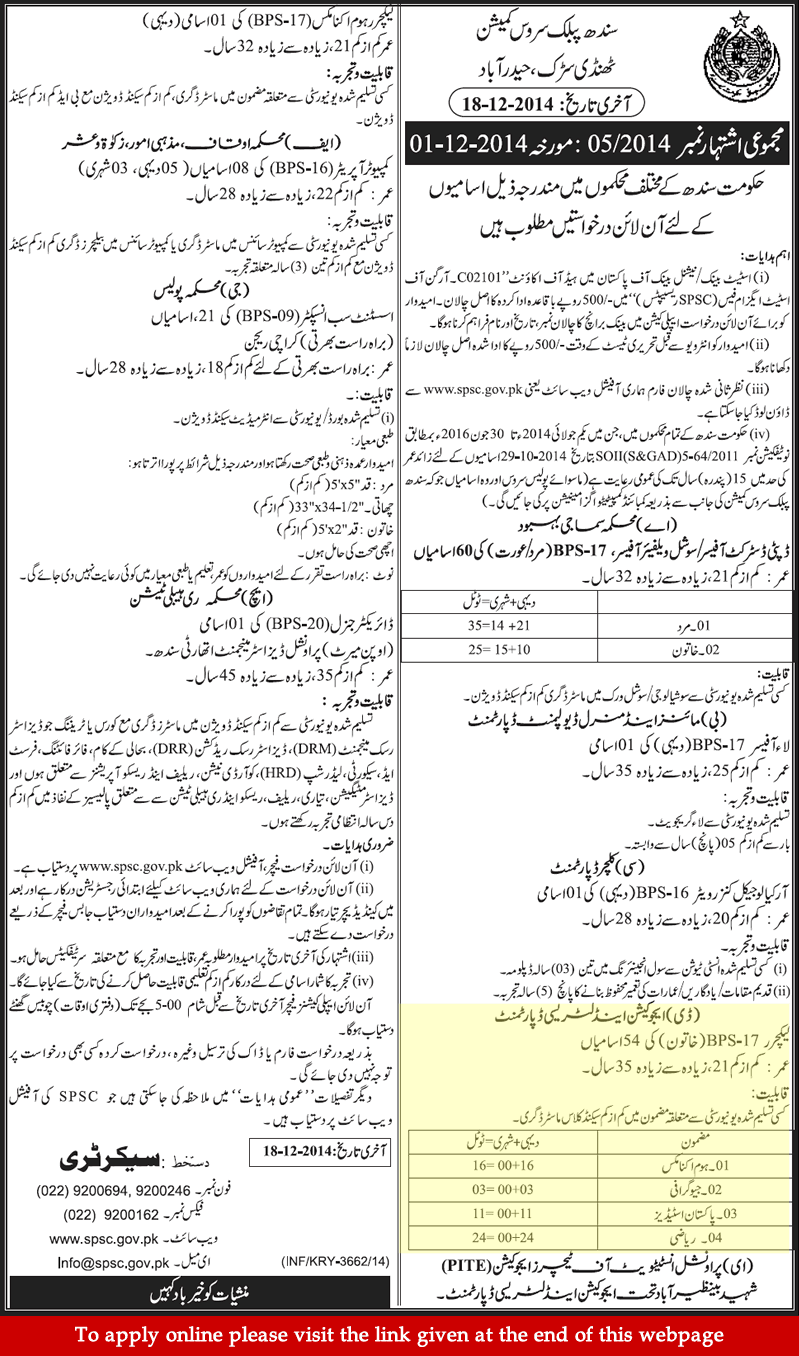 سندھ پبلک سروس کمیشن
ٹھنڈی سڑک، حیدرآباد
آخری تاریخ: 18-12-2014
مجموعی اشتہار نمبر 05/2014 : مورخہ 01-12-2014
حکومت سندھ کے مختلف محکموں میں مندرجہ ذیل اسامیوں
کے لئے آن لائن درخواستیں مطلوب ہیں
اہم ہدایات:
(i) اسٹیٹ بینک/نیشنل بینک آف پاکستان میں ہیڈ آف اکاؤنٹ "C02101۔آرگن آف
اسٹیٹ ایگزام فیس (SPSC رسیپٹس)" میں -/500 روپے باقاعدہ ادا کردہ کا اصل چالان۔ امیدوار
کو برائے آن لائن درخواست ایپلی کیشن میں بینک برانچ کا چالان نمبر، تاریخ اور نام فراہم کرنا ہوگا۔
(ii) امیدوار کو انٹرویو سے قبل تحریری ٹیسٹ کے وقت -/500 روپے کا ادا شدہ اصل چالان لازماً
دکھانا ہوگا۔
(iii) نظرثانی شدہ چالان فارم ہماری آفیشل ویب سائٹ یعنی www.spsc.gov.pk سے
ڈاؤن لوڈ کیا جاسکتا ہے۔
(iv) حکومت سندھ کے تمام محکموں میں، جن میں یکم جولائی 2014ء تا 30 جون 2016ء بمطابق
نوٹیفکیشن نمبر SOII(S&GAD)5-64/2011 بتاریخ 29-10-2014 اسامیوں کے لئے زائد عمر
کی حد میں 15 (پندرہ) سال تک کی عمومی رعایت ہے (ماسوائے پولیس سروس اور وہ اسامیاں جو کہ سندھ
پبلک سروس کمیشن کی جانب سے بذریعہ کمبائنڈ کمپیٹیٹو اگزامینیشن پر کی جائیں گی۔)
(اے) محکمہ سماجی بہبود
ڈپٹی ڈسٹرکٹ آفیسر/سوشل ویلفیئر آفیسر، BPS-17 (مرد/عورت) کی 60 اسامیاں
عمر: کم از کم 21، زیادہ سے زیادہ 32 سال۔
دیہی+شہری=ٹوٹل
01۔مرد 21+ 14=35
02۔خاتون 10+15 =25
قابلیت:
کسی تسلیم شدہ یونیورسٹی سے سوشیالوجی/سوشل ورک میں ماسٹر ڈگری کم از کم سیکنڈ ڈویژن۔
(بی) مائنز اینڈ منرل ڈیولپمنٹ ڈپارٹمنٹ
لاء آفیسر BPS-17 (دیہی) کی 01 اسامی
عمر: کم از کم 25، زیادہ سے زیادہ 35 سال۔
قابلیت و تجربہ:
تسلیم شدہ یونیورسٹی سے لاء گریجویٹ۔
بار سے کم از کم 05 (پانچ) سال سے وابستہ۔
(سی) کلچر ڈپارٹمنٹ
آرکیالوجیکل کنزرویٹر BPS-16 (دیہی) کی 01 اسامی
عمر: کم از کم 20، زیادہ سے زیادہ 28 سال۔
قابلیت و تجربہ۔
(i) کسی تسلیم شدہ انسٹی ٹیوشن سے سول انجینئرنگ میں تین (03) سالہ ڈپلومہ۔
(ii) قدیم مقامات/یادگاریں/عمارات کی تعمیر محفوظ بنانے کا پانچ (5) سالہ تجربہ۔
(ڈی) ایجوکیشن اینڈ لٹریسی ڈپارٹمنٹ
لیکچرر BPS-17 (خاتون) کی 54 اسامیاں
عمر: کم از کم 21، زیادہ سے زیادہ 35 سال۔
قابلیت:
کسی تسلیم شدہ یونیورسٹی سے متعلقہ مضمون میں کم از کم سیکنڈ کلاس ماسٹر ڈگری۔
مضمون دیہی+شہری=ٹوٹل
01۔ہوم اکنامکس 16+00 =16
02۔جیوگرافی 03+00 =03
03۔پاکستان اسٹیڈیز 11+00 =11
04۔ ریاضی 24+00 =24
(ای) پراونشل انسٹیٹیوٹ آف ٹیچرز ایجوکیشن (PITE)
شہید بینظیر آباد تحت ایجوکیشن اینڈ لٹریسی ڈپارٹمنٹ۔
لیکچرر ہوم اکنامکس (BPS-17) کی 01 اسامی (دیہی)
عمر کم از کم 21، زیادہ سے زیادہ 32 سال۔
قابلیت و تجربہ:
کسی تسلیم شدہ یونیورسٹی سے متعلقہ مضمون میں ماسٹر ڈگری، کم از کم سیکنڈ ڈویژن مع بی ایڈ کم از کم سیکنڈ
ڈویژن۔
(ایف) محکمہ اوقاف، مذہبی امور، زکوٰۃ و عشر
کمپیوٹر آپریٹر (BPS-16) کی 08 اسامیاں (05 دیہی، 03 شہری)
عمر: کم از کم 22، زیادہ سے زیادہ 28 سال۔
قابلیت و تجربہ:
کسی تسلیم شدہ یونیورسٹی سے کمپیوٹر سائنس میں ماسٹر ڈگری یا کمپیوٹر سائنس میں بیچلرز ڈگری کم از کم سیکنڈ
ڈویژن مع کم از کم تین (3) سالہ متعلقہ تجربہ۔
(جی) محکمہ پولیس
اسسٹنٹ سب انسپکٹر (BPS-09) کی 21، اسامیاں
(براہ راست بھرتی) کراچی ریجن
عمر: براہ راست بھرتی کے لئے کم از کم 18، زیادہ سے زیادہ 28 سال۔
قابلیت:۔
(i) تسلیم شدہ بورڈ/یونیورسٹی سے انٹرمیڈیٹ سیکنڈ ڈویژن۔
طبعی معیار:
امیدوار عمدہ ذہنی و طبعی صحت رکھتا ہو اور مندرجہ ذیل شرائط پر پورا اترتا ہو:
مرد: قد "5'x5 (کم از کم)
چھاتی۔ "33"x34-1/2 (کم از کم)
خاتون: قد "5'x2 (کم از کم)
اچھی صحت کی حامل ہوں۔
نوٹ: براہ راست تقرر کے لئے امیدواروں کو عمر، تعلیم یا طبعی معیار میں کوئی رعایت نہیں دی جائے گی۔
(ایچ) محکمہ ری ہیبلی ٹیشن
ڈائریکٹر جنرل (BPS-20) کی 01 اسامی
(اوپن میرٹ) پراونشل ڈیزاسٹر مینجمنٹ اتھارٹی سندھ۔
عمر: کم از کم 35، زیادہ سے زیادہ 45 سال۔
قابلیت و تجربہ :
تسلیم شدہ یونیورسٹی سے کم از کم سیکنڈ ڈویژن میں ماسٹرز ڈگری مع کورس یا ٹریننگ جو ڈیزاسٹر
رسک مینجمنٹ (DRM)، ڈیزاسٹر رسک ریڈکشن (DRR)، بحالی کے کام، فائر فائٹنگ، فرسٹ
ایڈ، سیکورٹی، لیڈرشپ (HRD)، کوآرڈی نیشن، ریلیف اینڈ ریسکو آپریشنز سے متعلق ہوں اور
ڈیزاسٹر مٹیگیشن، تیاری، ریلیف، ریسکو اینڈ ری ہیبلی ٹیشن سے متعلق پالیسیز کے نفاذ میں کم از کم
دس سالہ انتظامی تجربہ رکھتے ہوں۔
ضروری ہدایات۔
(i) آن لائن درخواست فیچر، آفیشل ویب سائٹ www.spsc.gov.pk پر دستیاب ہے۔
(ii) آن لائن درخواست کے لئے ہماری ویب سائٹ کیلئے ابتدائی رجسٹریشن درکار ہے اور بعد
میں کینڈیڈیچر تیار ہوگا۔ تمام تقاضوں کو پورا کرنے کے بعد امیدواران دستیاب جابس فیچر کے ذریعے
درخواست دے سکتے ہیں۔
(iii) اشتہار کی آخری تاریخ پر امیدوار مطلوبہ عمر، قابلیت اور تجربہ کا مع متعلقہ سرٹیفکیٹس حامل ہو۔
(iv) تجربہ کا شمار اسامی کے لئے درکار کم از کم تعلیمی قابلیت حاصل کرنے کی تاریخ سے کیا جائے گا۔
آن لائن ایپلی کیشنز فیچر آخری تاریخ سے قبل شام 5-00 بجے تک (دفتری اوقات) چوبیس گھنٹے
دستیاب ہوگا۔
بذریعہ درخواست فارم یا ڈاک کی ترسیل وغیرہ، درخواست کردہ کسی بھی درخواست پر
توجہ نہیں دی جائے گی۔
دیگر تفصیلات "عمومی ہدایات" میں ملاحظہ کی جاسکتی ہیں جو SPSC کی آفیشل
ویب سائٹ پر دستیاب ہیں۔
آخری تاریخ: 18-12-2014
دستخط: سیکرٹری
فون نمبر۔ 9200246 ,9200694 (022)
فیکس نمبر۔ 9200162 (022)
ویب سائٹ۔ www.spsc.gov.pk
ای میل۔ Info@spsc.gov.pk
(INF/KRY-3662/14)
منشیات کو خیرباد کہیں
To apply online please visit the link given at the end of this webpage